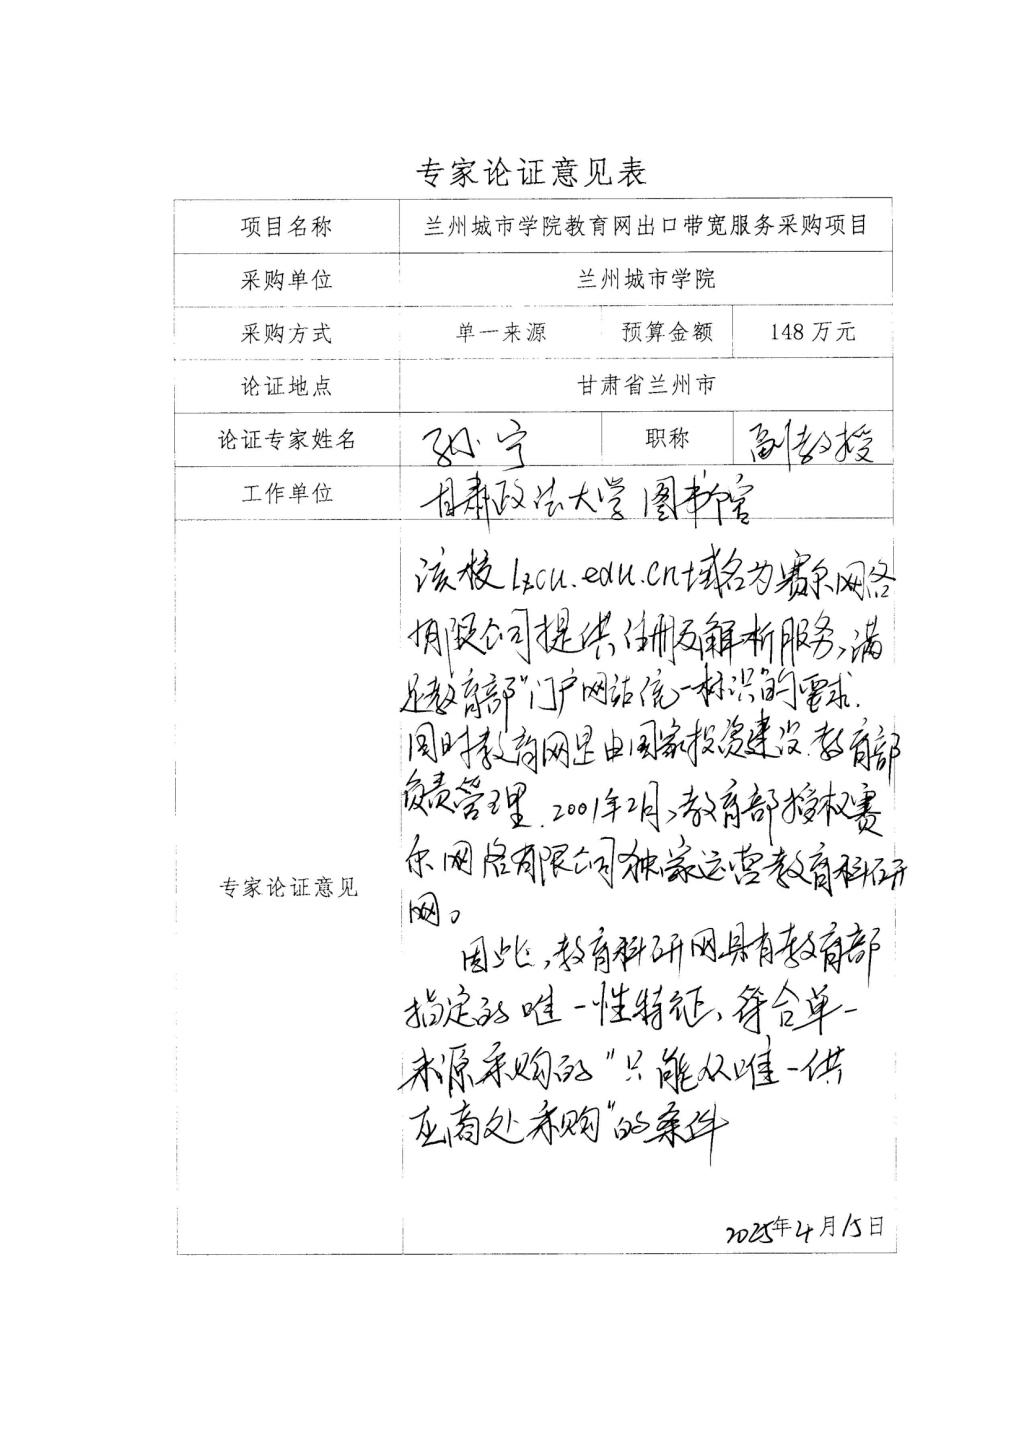 专家论证意见表
项目名称 兰州城市学院教育网出口带宽服务采购项目
采购单位 兰州城市学院
采购方式 单一来源 预算金额 148 万元
论证地点 甘肃省兰州市
论证专家姓名 孙宁 职称 副教授
工作单位 甘肃政法大学 图书馆
专家论证意见
该校 lzcu.edu.cn域名为赛尔网络
有限公司提供注册及解析服务,满
足教育部"门户网站统一标识"的要求.
同时教育网是由国家投资建设.教育部
负责管理.2001年2月,教育部授权赛
尔网络有限公司独家运营教育科研
网。
因此,教育科研网具有教育部
指定的唯一性特征,符合单一
来源采购的"只能从唯一供
应商处采购"的条件
2025年4月15日